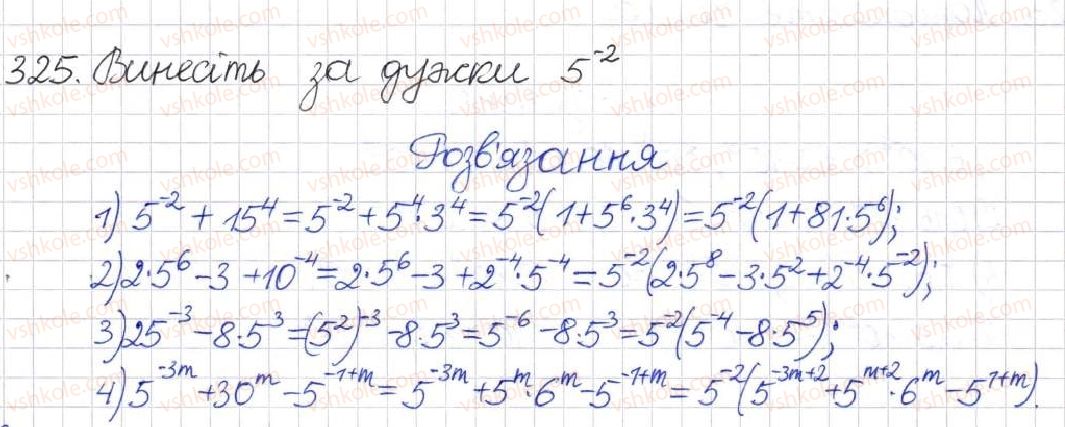 325. Винесіть за дужки 5⁻²
Розв'язання
1) 5⁻² + 15⁴ = 5⁻² + 5⁴·3⁴ = 5⁻²(1+5⁶·3⁴) = 5⁻²(1+81·5⁶);
2) 2·5⁶ − 3 + 10⁻⁴ = 2·5⁶ − 3 + 2⁻⁴·5⁻⁴ = 5⁻²(2·5⁸ − 3·5² + 2⁻⁴·5⁻²);
3) 25⁻³ − 8·5³ = (5²)⁻³ − 8·5³ = 5⁻⁶ − 8·5³ = 5⁻²(5⁻⁴ − 8·5⁵);
4) 5⁻³ᵐ + 30ᵐ − 5⁻¹⁺ᵐ = 5⁻³ᵐ + 5ᵐ·6ᵐ − 5⁻¹⁺ᵐ = 5⁻²(5⁻³ᵐ⁺² + 5ᵐ⁺²·6ᵐ − 5¹⁺ᵐ).